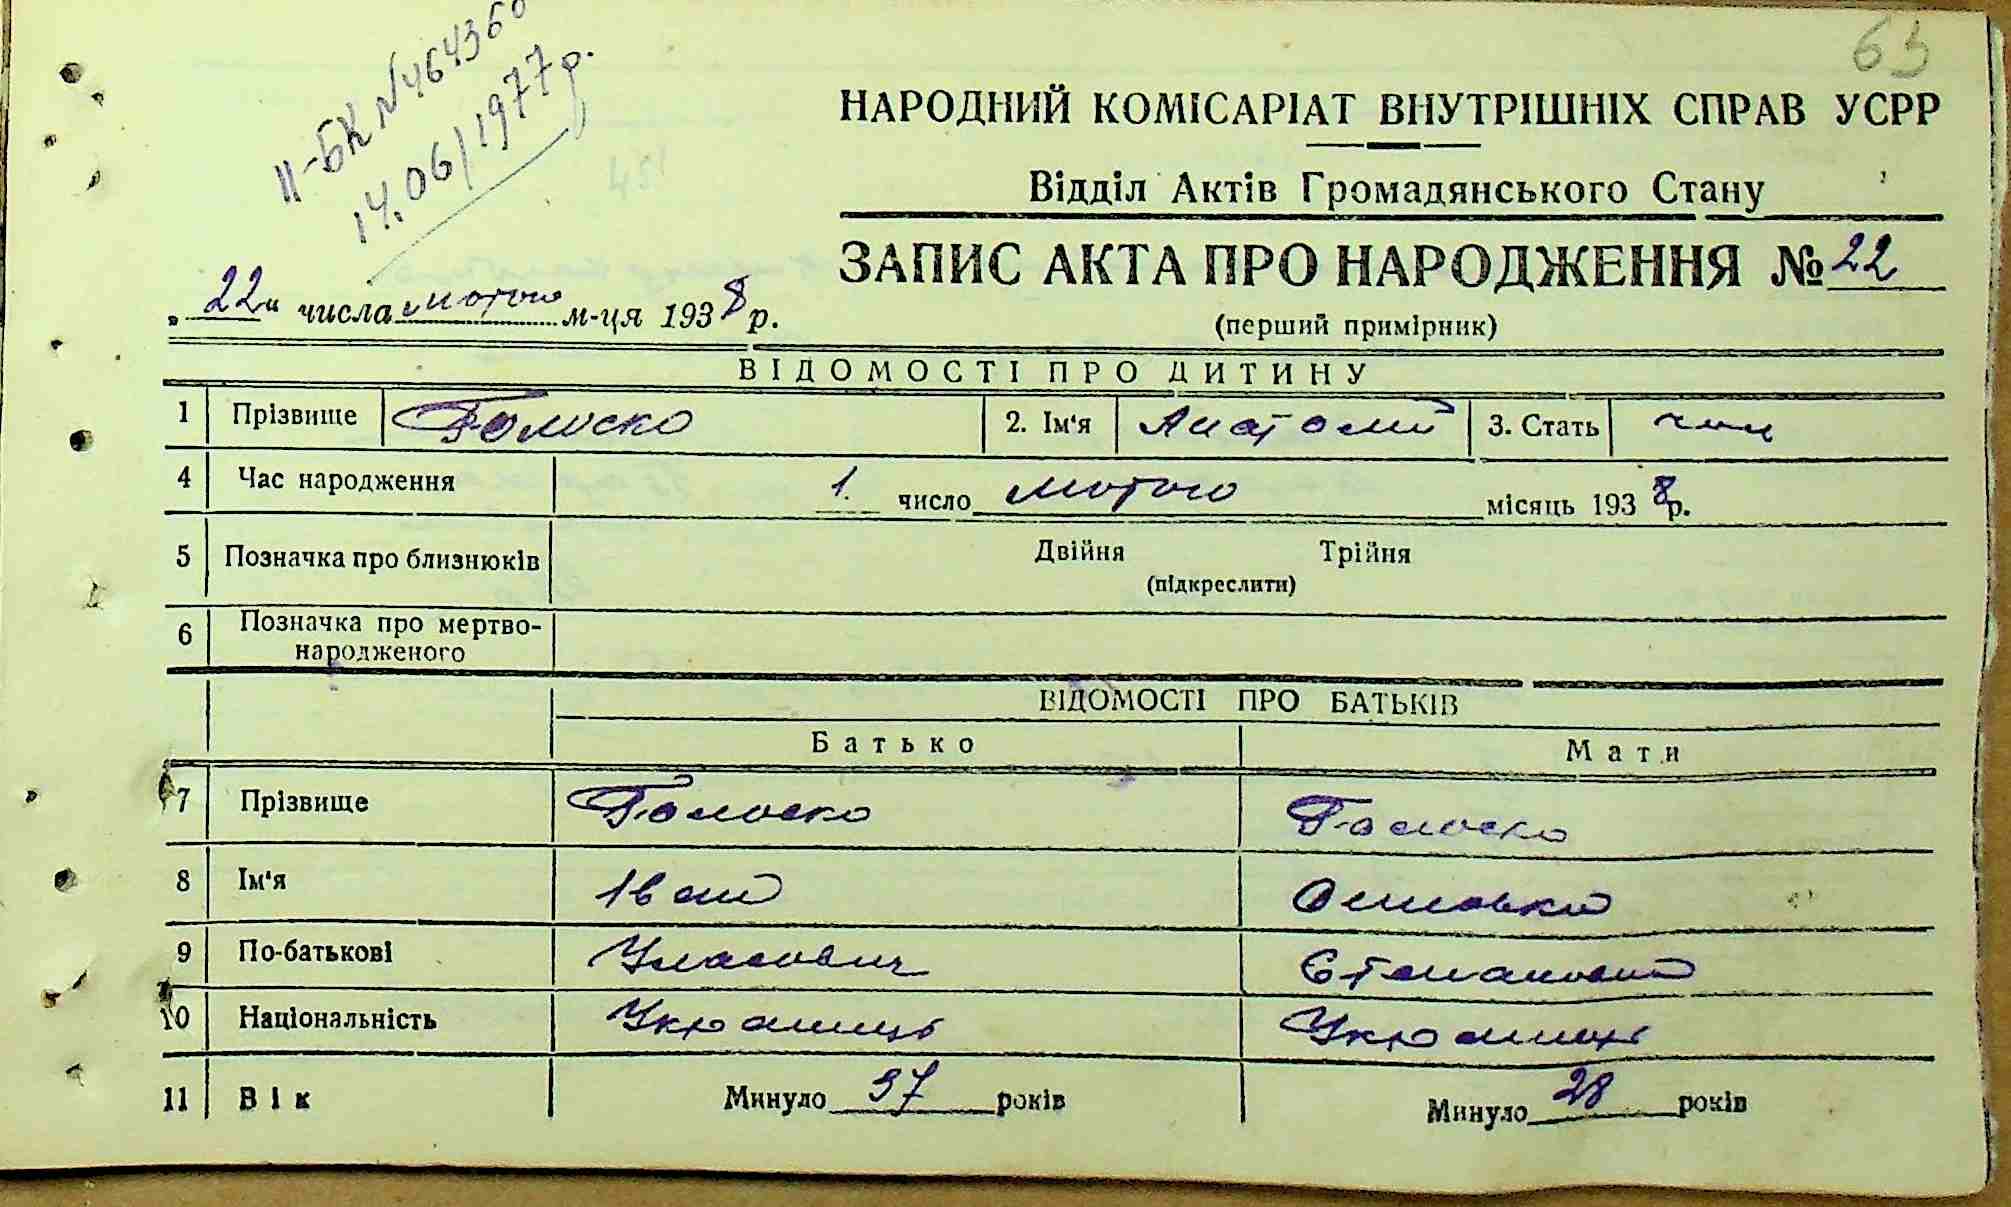 63
ІІ-БК №464360
14.06/1977 р.
НАРОДНИЙ КОМІСАРІАТ ВНУТРІШНІХ СПРАВ УСРР
Відділ Актів Громадянського Стану
ЗАПИС АКТА ПРО НАРОДЖЕННЯ № 22
„22“ числа лютого м-ця 1938 р.
(перший примірник)
ВІДОМОСТІ ПРО ДИТИНУ
1 Прізвище Голоско 2. Ім'я Анатолий 3. Стать чол
4 Час народження 1. число лютого місяць 1938 р.
5 Позначка про близнюків Двійня Трійня
(підкреслити)
6 Позначка про мертво-
народженого
ВІДОМОСТІ ПРО БАТЬКІВ
Батько Мати
7 Прізвище Голоско Голоско
8 Ім'я Іван
9 По-батькові Уласович Степановна
10 Національність Українець
11 Вік Минуло 37 років Минуло 28 років